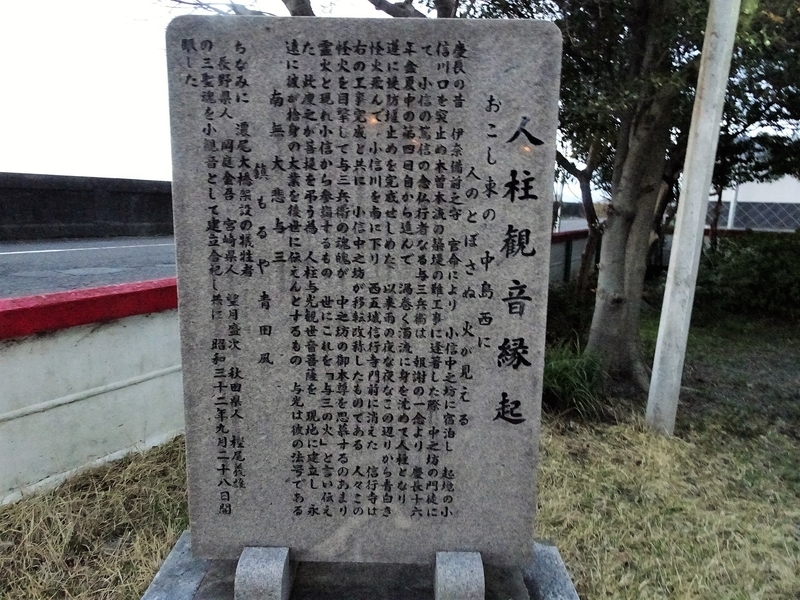 人柱観音縁起
おこし東の 中島 西に
人のとぼさぬ 火が見える
慶長の昔 伊奈備前之守 官命により 小信中之坊に宿泊し 起地の小
信川口を突止め木曽本流の築堤の難工事に逢着した際 中之坊の門徒に
て 小信の篤信の念仏行者なる与三兵衛は 報謝の一念より 慶長十六
年盒夏中の第四日自から進んで 渦巻く濁流に身を沈めて人柱となり
遂に堤防堰止めを完成せしめた 以来雨の夜な夜なこの辺りから青白き
怪火飛んで 小信川を南に下り 西五城信行寺門前に消えた 信行寺は
右の工事完成と共に 小信中之坊が移転改称したものである 人々この
怪火を目撃して与三兵衛の魂魄が 中之坊の御本尊を思慕するのあまり
霊火と現れ小信から参詣するもの 世にこれを「与三の火」と言い伝え
た 此度之が菩提を弔う為 人柱与光観世音菩薩を 現地に建立し 永
遠に彼が捨身の大業を後世に伝えんとするもの 与光は彼の法号である
南無大悲与三
鎮もるや 青田風
ちなみに 濃尾大橋架設の犠牲者
長野県人 岡庭金吾 宮崎県人 望月盛次 秋田県人 樫尾義雄
の三聖魂を小観音として建立合祀し共に 昭和三十二年九月二十八日開
眼した